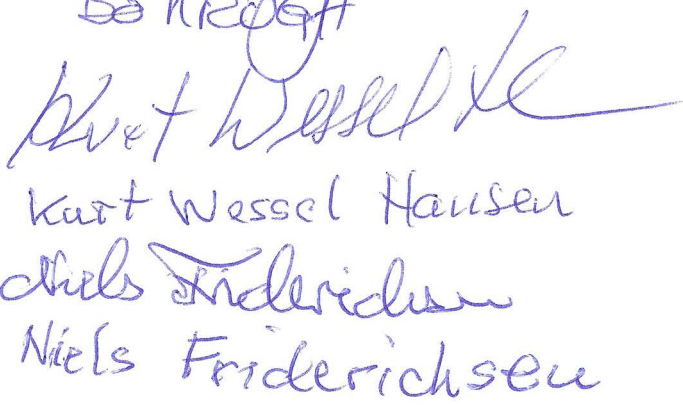 Bo Krogh
Kurt Wessel
Kurt Wessel Hansen
Niels Friderichsen
Niels Friderichsen